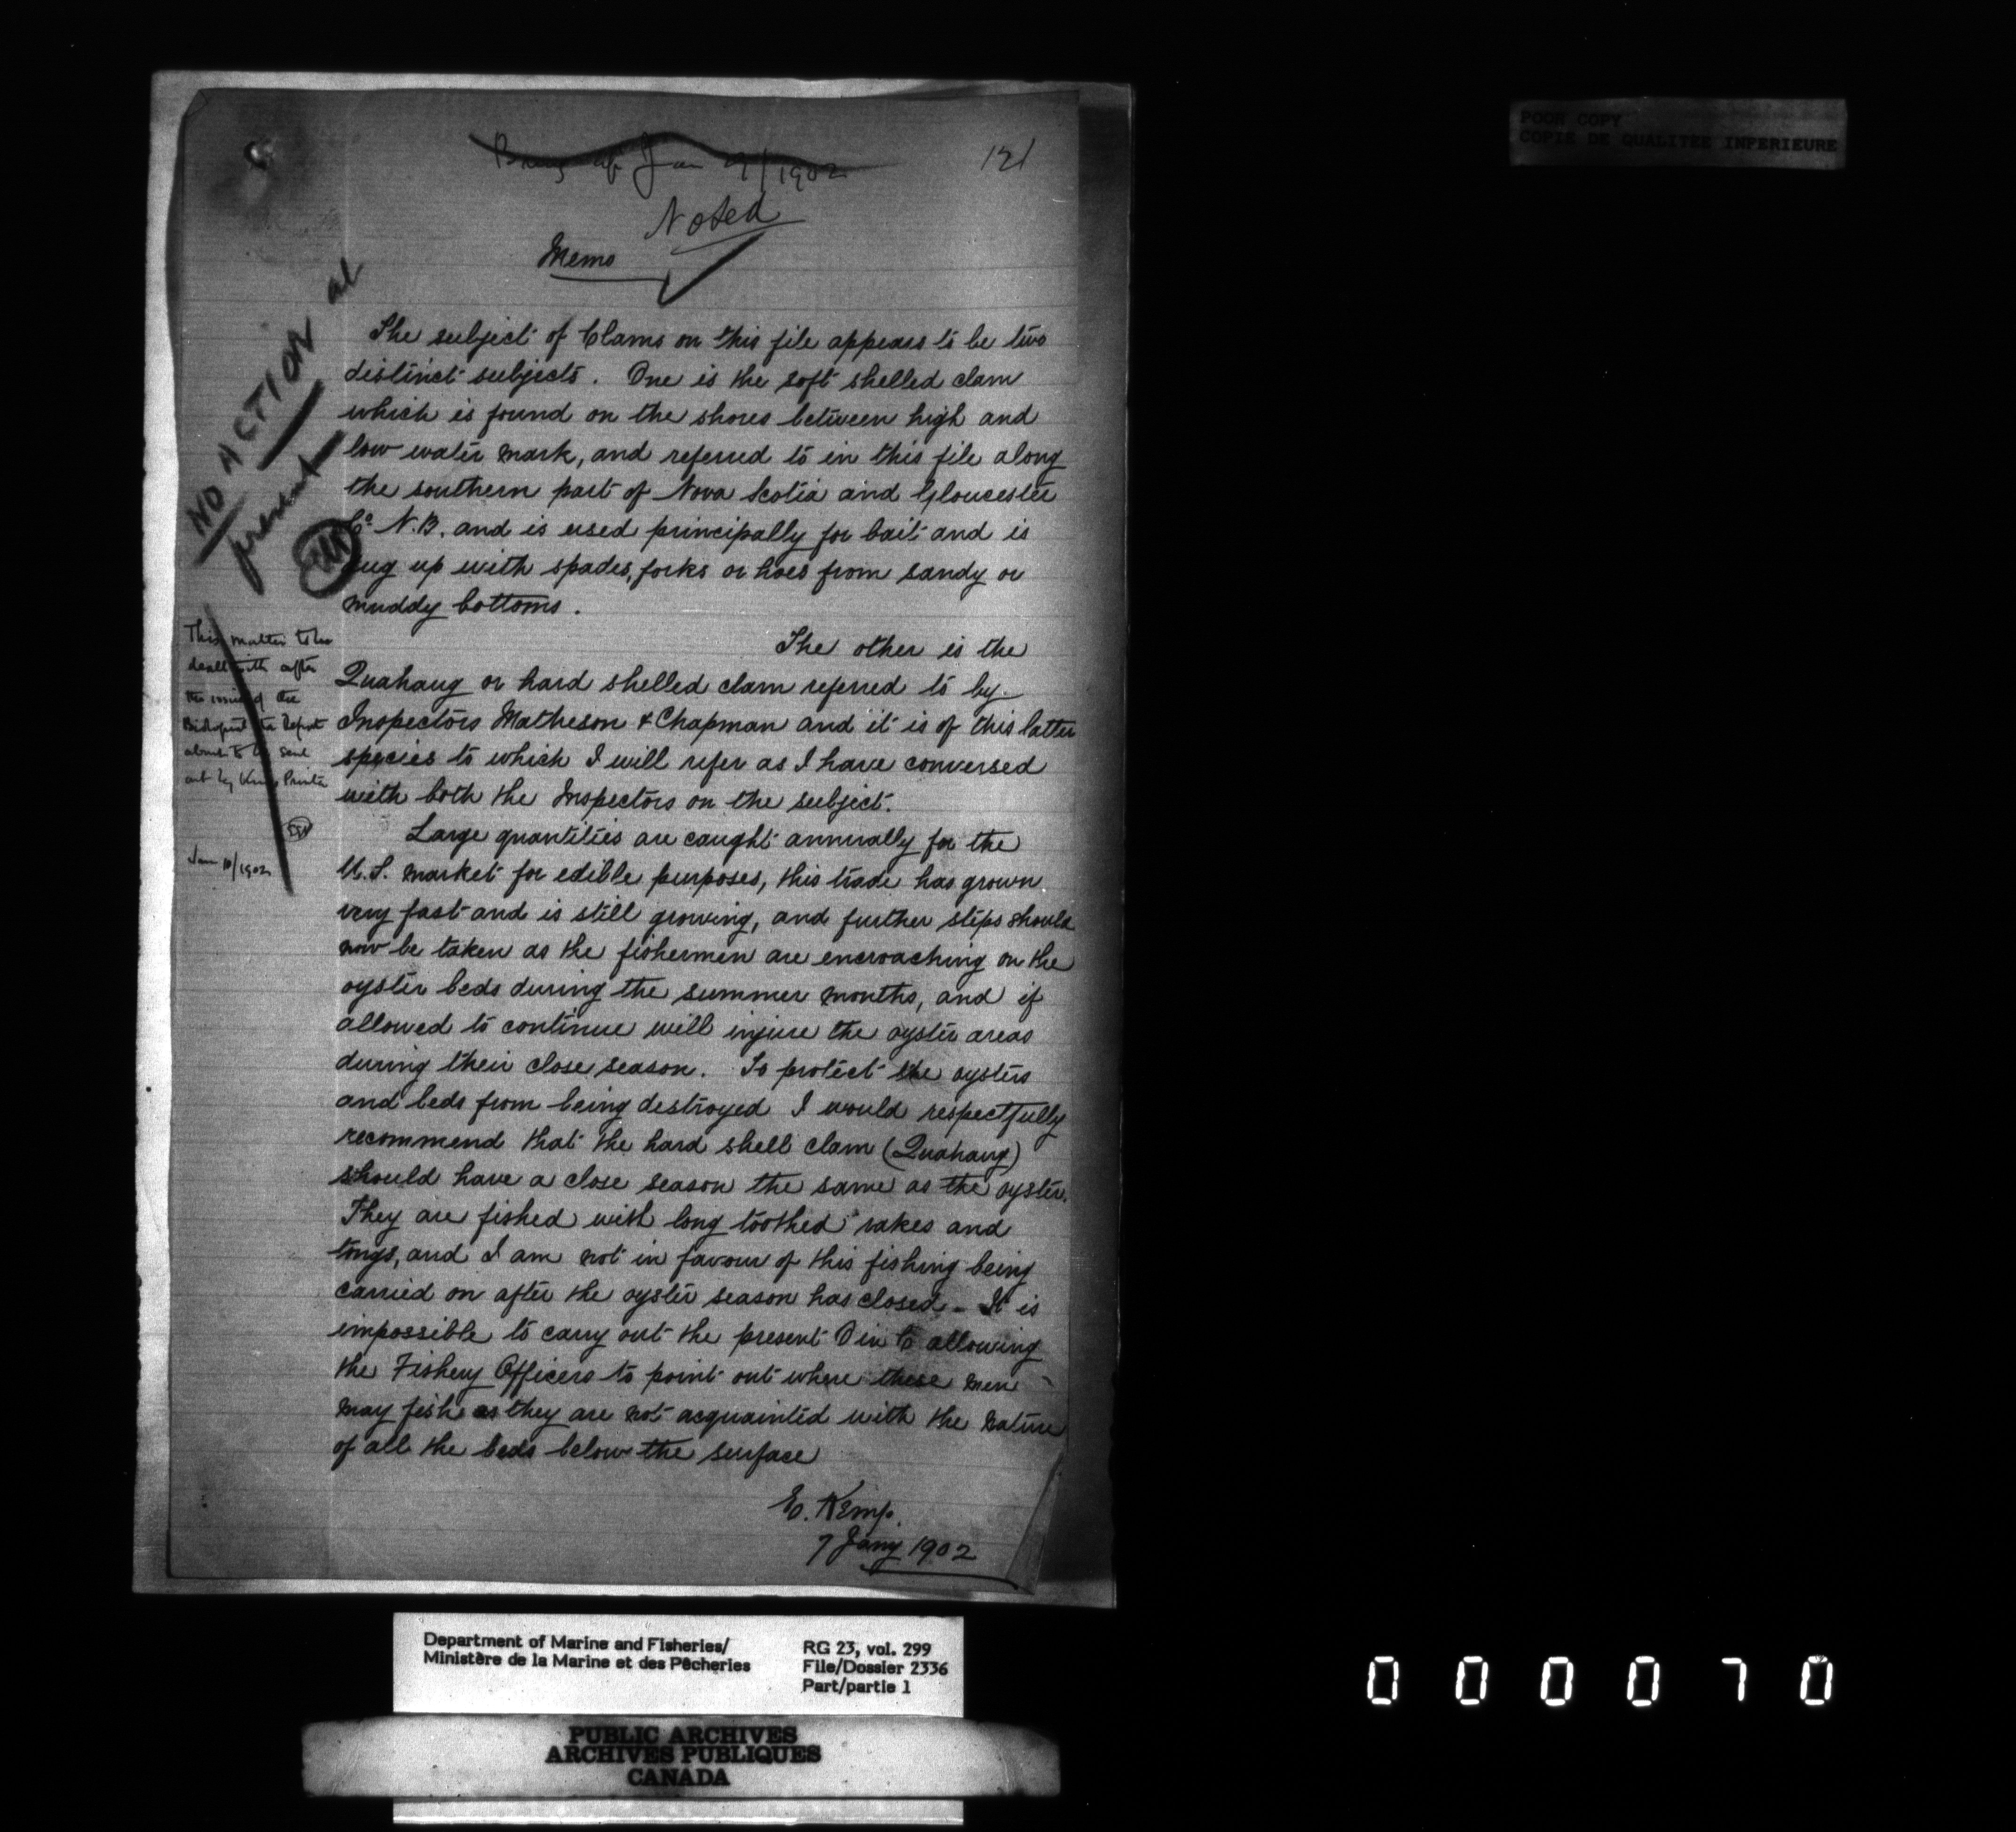 Bring up Jan 9/1902
121
Noted
Memo
NO ACTION at
present
The subject of Clams on this file appears to be two
distinct subjects. One is the soft shelled clam
which is found on the shores between high and
low water mark, and referred to in this file along
the southern part of Nova Scotia and Gloucester
Co N.B. and is used principally for bait and is
dug up with spades, forks or hoes from sandy or
muddy bottoms.
The other is the
Quahaug or hard shelled clam referred to by
Inspectors Matheson & Chapman and it is of this latter
species to which I will refer as I have conversed
with both the Inspectors on the subject.
Large quantities are caught annually for the
U.S. market for edible purposes, this trade has grown
very fast and is still growing, and further steps should
now be taken as the fishermen are encroaching on the
oyster beds during the summer months, and if
allowed to continue will injure the oyster areas
during their close season. To protect the oysters
and beds from being destroyed I would respectfully
recommend that the hard shell clam (Quahaug)
should have a close season the same as the oyster.
They are fished with long toothed rakes and
tongs, and I am not in favour of this fishing being
carried on after the oyster season has closed - It is
impossible to carry out the present O in C allowing
the Fishery Officers to point out where these men
may fish as they are not acquainted with the nature
of all the beds below the surface
E. Kemp.
7 Jany 1902
This matter to be
dealt with after
the issue of the
Report
about to be sent
out by King's Printer
Jan 10/1902
POOR COPY
COPIE DE QUALITEE INFERIEURE
Department of Marine and Fisheries/
Ministère de la Marine et des Pêcheries
RG 23, vol. 299
File/Dossier 2336
Part/partie 1
PUBLIC ARCHIVES
ARCHIVES PUBLIQUES
CANADA
000070